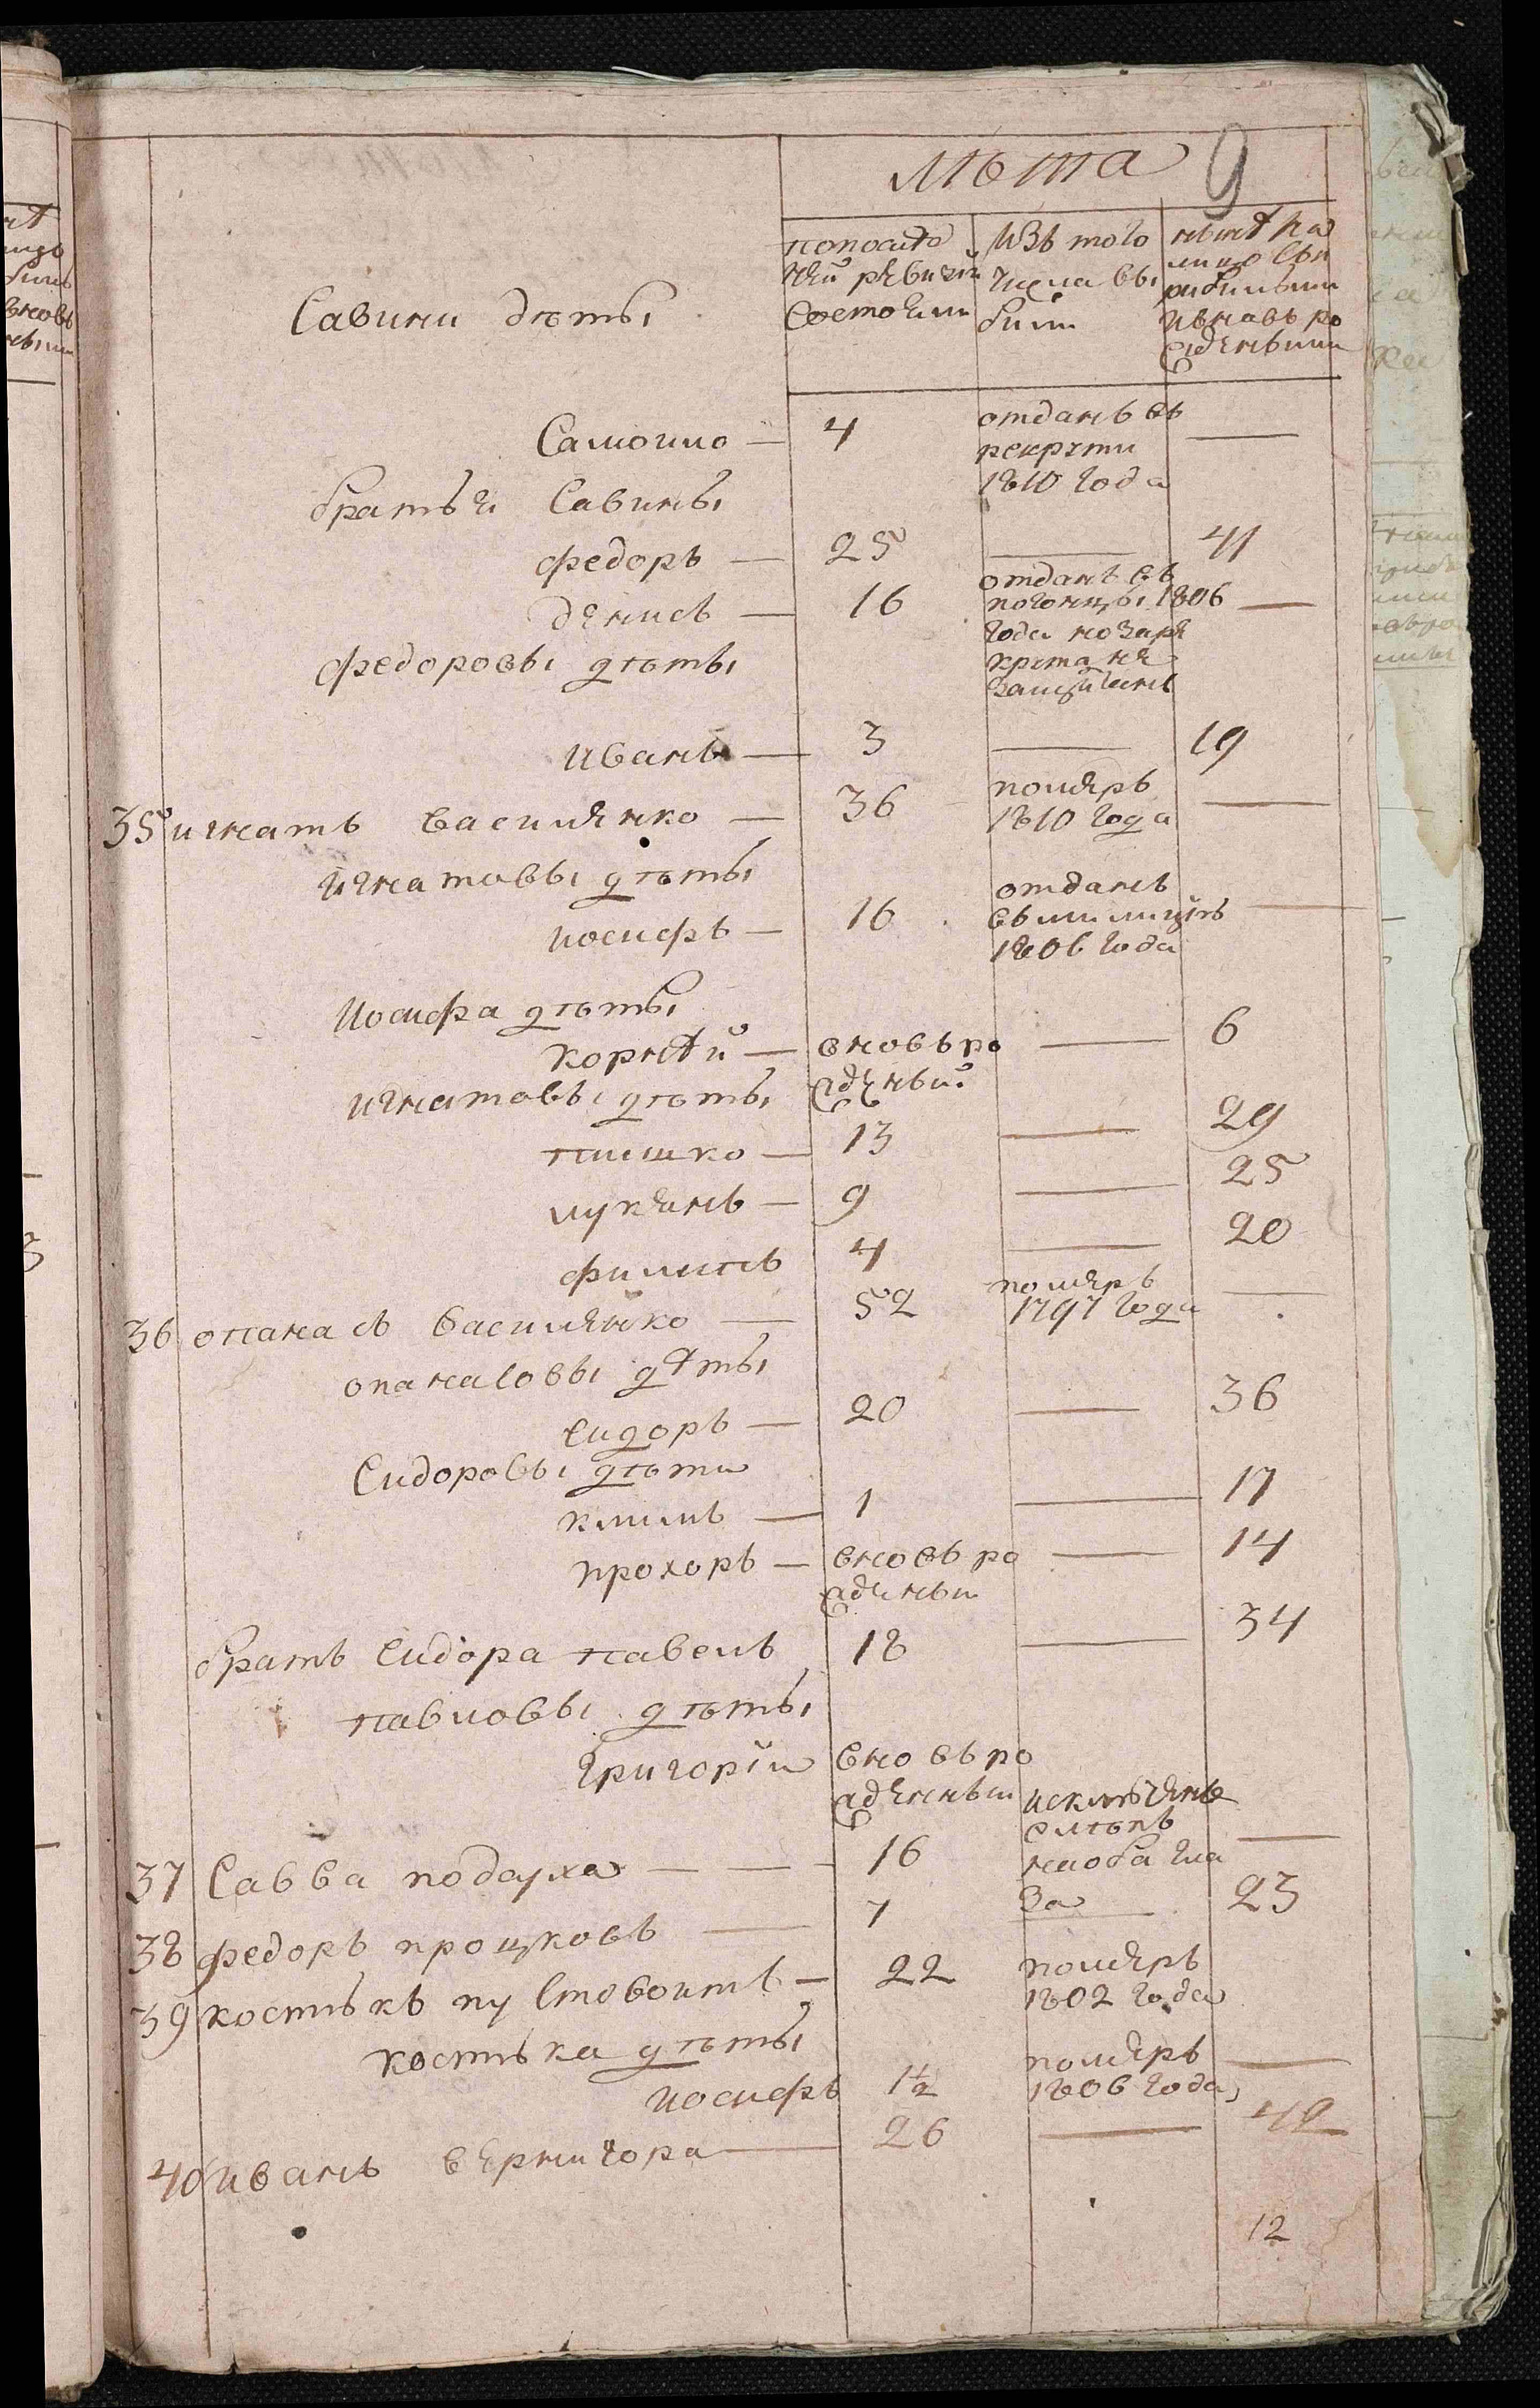 лѣта 9
попослѣд
ней ревизии
Состояли
Изъ того
числа вы
были
нынѣ на
лицо съ
прибылыми
ивновь ро
жденными
Савини дѣты
Самоило — 4 отданъ въ —
рекруты
1810 года
братья Савины
федоръ — 25 — 41
денисъ — 16 отданъ въ —
погонцы 1806
года
федоровы дѣты
иванъ — 3 — 19
35 игнатъ василенко — 36 померъ —
1810 года
игнатовы дѣты
иосифъ — 16 отданъ —
въ милицію
1806 года
Иосифа дѣты
корнѣй — вновь ро — 6
жденый
игнатовы дѣты
пилипко — 13 — 29
лукянъ — 9 — 25
филипъ 4 — 20
36 опанасъ василенко — 52 померъ —
1797 года
опанасовы дѣты
сидоръ — 20 — 36
Сидоровы дѣти
климъ — 1 — 17
прохоръ — вновь ро — 14
жденый
братъ сидора павелъ 18 — 34
павловы дѣты
григорій вновь ро
жденный
37 Савва подауха — — — 16 исключенъ —
38 федоръ процковъ — 7 — 23
39 костькъ пустовоитъ — 22 померъ
1802 года
костька дѣты
иосифъ 1½ померъ —
1806 года
40 иванъ вернигора — 26 — 42
12